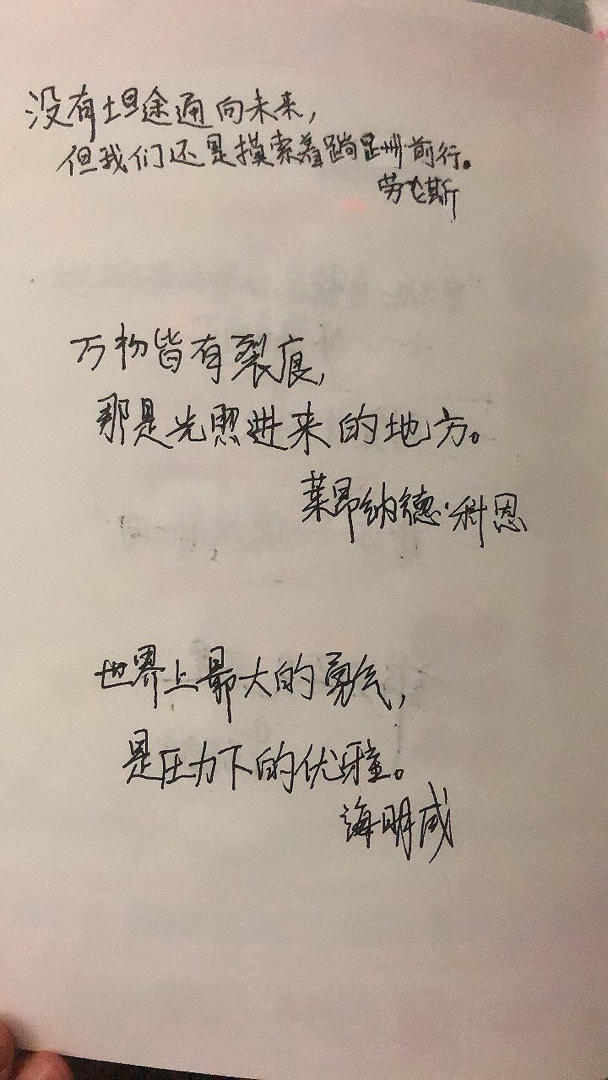 没有坦途通向未来,
但我们还是摸索着蹒跚前行。
劳伦斯
万物皆有裂痕,
那是光照进来的地方。
莱昂纳德·科恩
世界上最大的勇气,
是压力下的优雅。
海明威